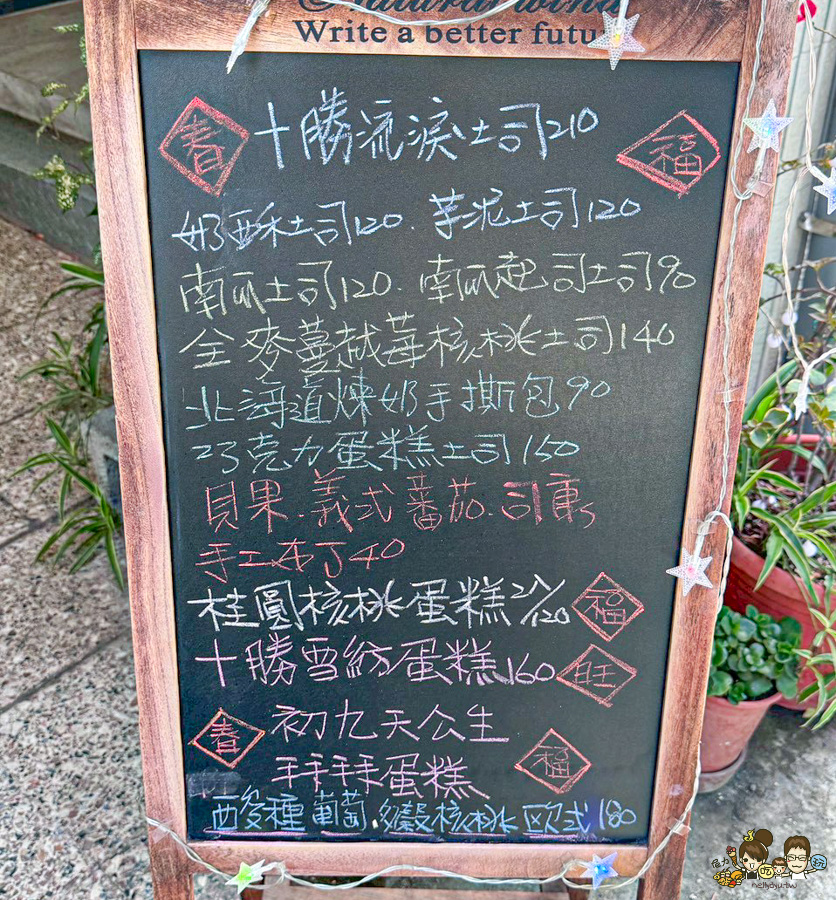 Write a better futu
春 十勝流淚土司210 福
奶酥土司120.芋泥土司120
南瓜土司120.南瓜起司土司90
全麥蔓越莓核桃土司140
北海道煉奶手撕包90
巧克力蛋糕土司150
貝果.義式番茄.司康
手工布丁40
桂圓核桃蛋糕2入/120 福
十勝雪紡蛋糕160 旺
春 初九天公生
蛋糕 福
葡萄.多穀核桃歐式180